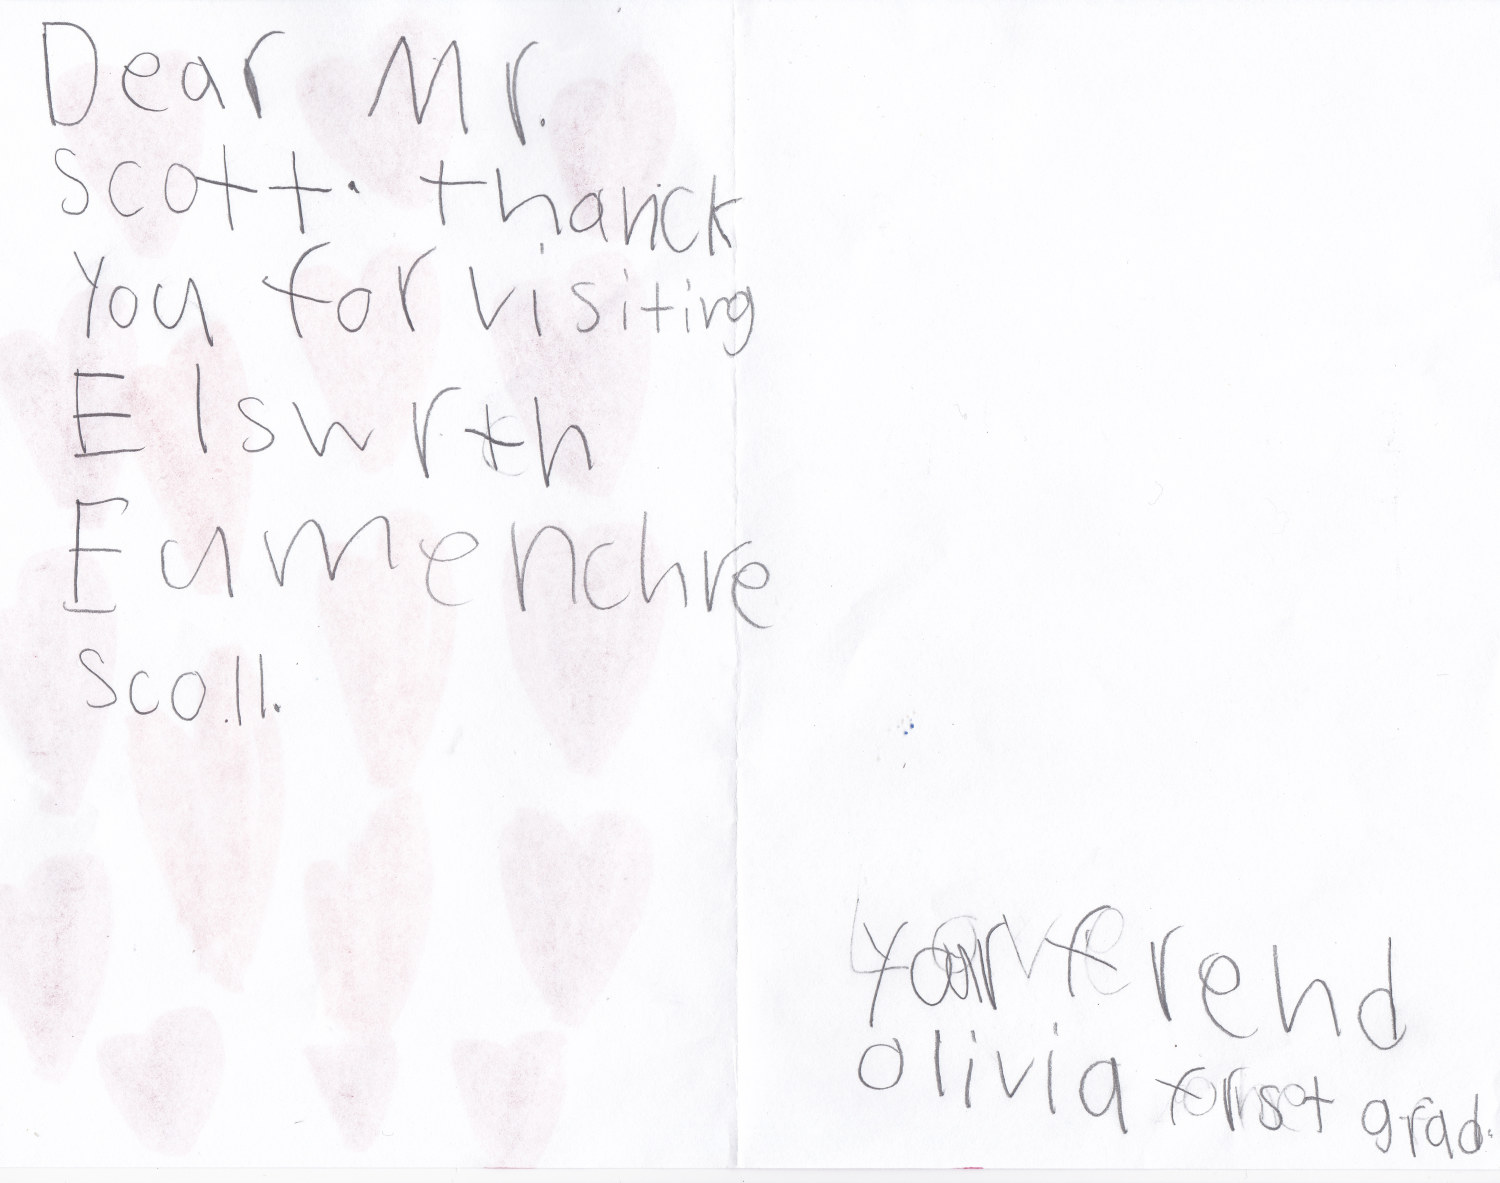 Dear Mr.
scott. thanck
you for visiting
Elswrth
Eamenchre
scoll.
your frend
olivia forst grad.